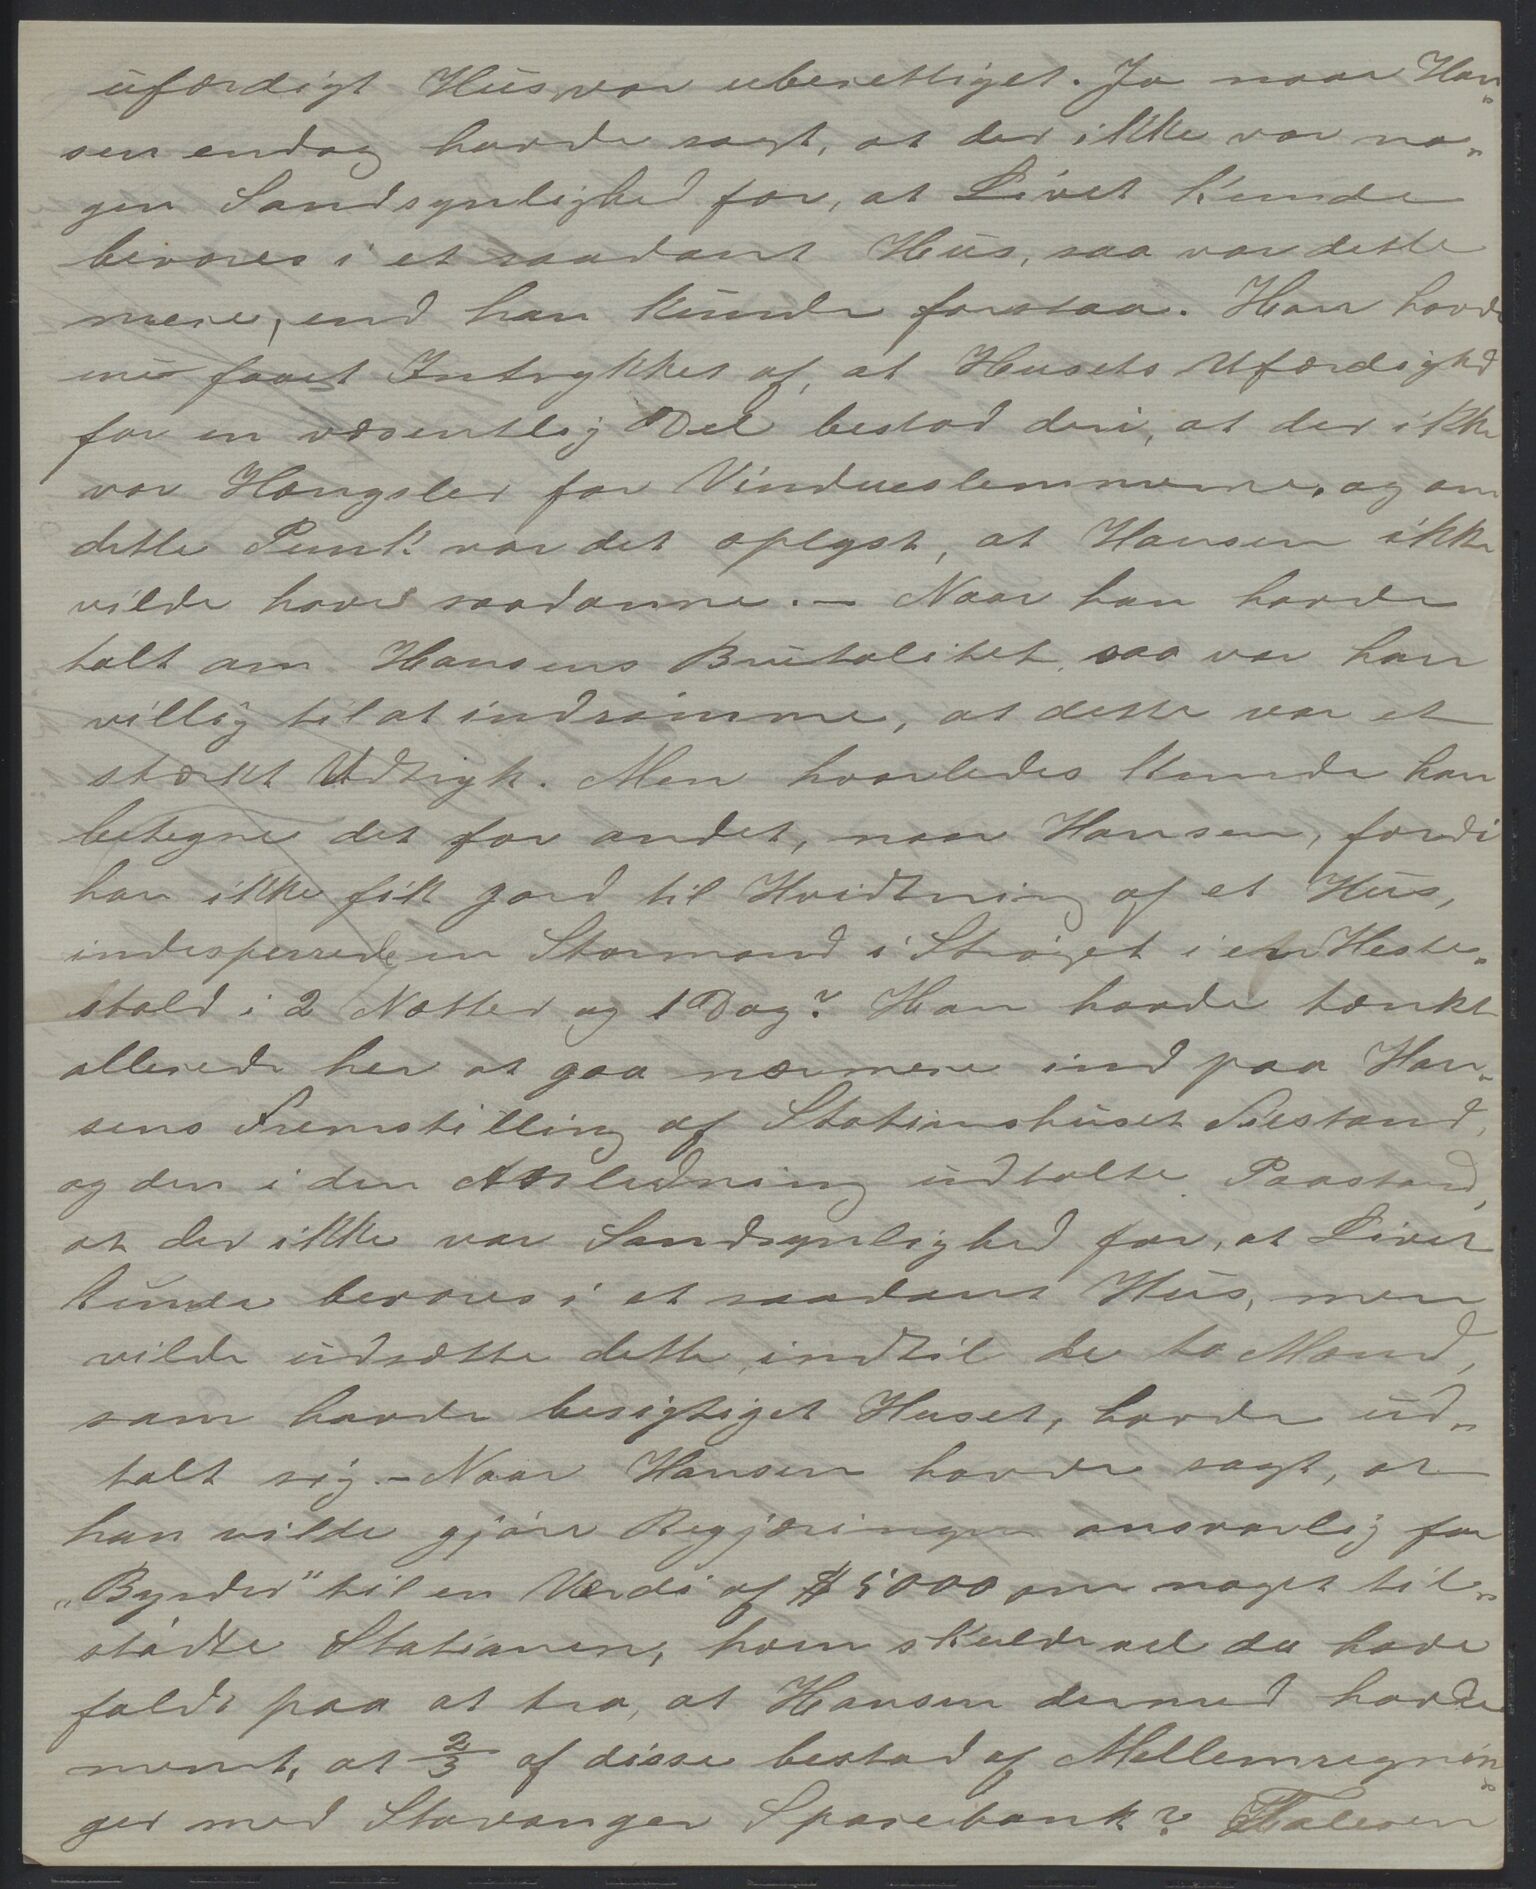 ufærdigt Hus, var uberettiget. Ja naar Han„
sen endog havde sagt, at der ikke var no„
gen Sandsynlighed for, at Livet kunde
bevares i et saadant Hus, saa var dette
mere, end han kunde forstaa. Han havde
nu faaet Intrykket af, at Husets Ufærdighed
for en væsentlig Del bestod deri, at der ikke
var Hængsler for Vindueslemmerne, og om
dette Punkt var det oplyst, at Hansen ikke
vilde have saadanne. – Naar han havde
talt om Hansens Brutalitet, saa var han
villig til at indrømme, at dette var et
stærkt Udtryk. Men hvorledes kunde han
betegne det for andet, naar Hansen, fordi
han ikke fik Jord til Hvidtning af et Hus,
indesperrede en Stormand i Strøget i en Heste„
stald i 2 Nætter og 1 Dag? Han havde tænkt
allerede her at gaa nærmere ind paa Han„
sens Fremstilling af Stationshuset Tilstand,
og den i den Anledning udtalte Paastand,
at der ikke var Sandsynlighed for, at Livet
kunde bevares i et saadant Hus, men
vilde udsætte dette, indtil de to Mænd,
som havde besigtiget Huset, havde ud„
talt sig. – Naar Hansen havde sagt, at
han vilde gjøre Regjeringen ansvarlig for
„Byrder" til en Værdi af $ 5000 om noget til„
stødte Stationen, hvem skulde vel da have
faldt paa at tro, at Hansen dermed havde
ment, at 2/3 af disse bestod af Mellemregnin„
ger med Stavanger Sparebank? Taleren